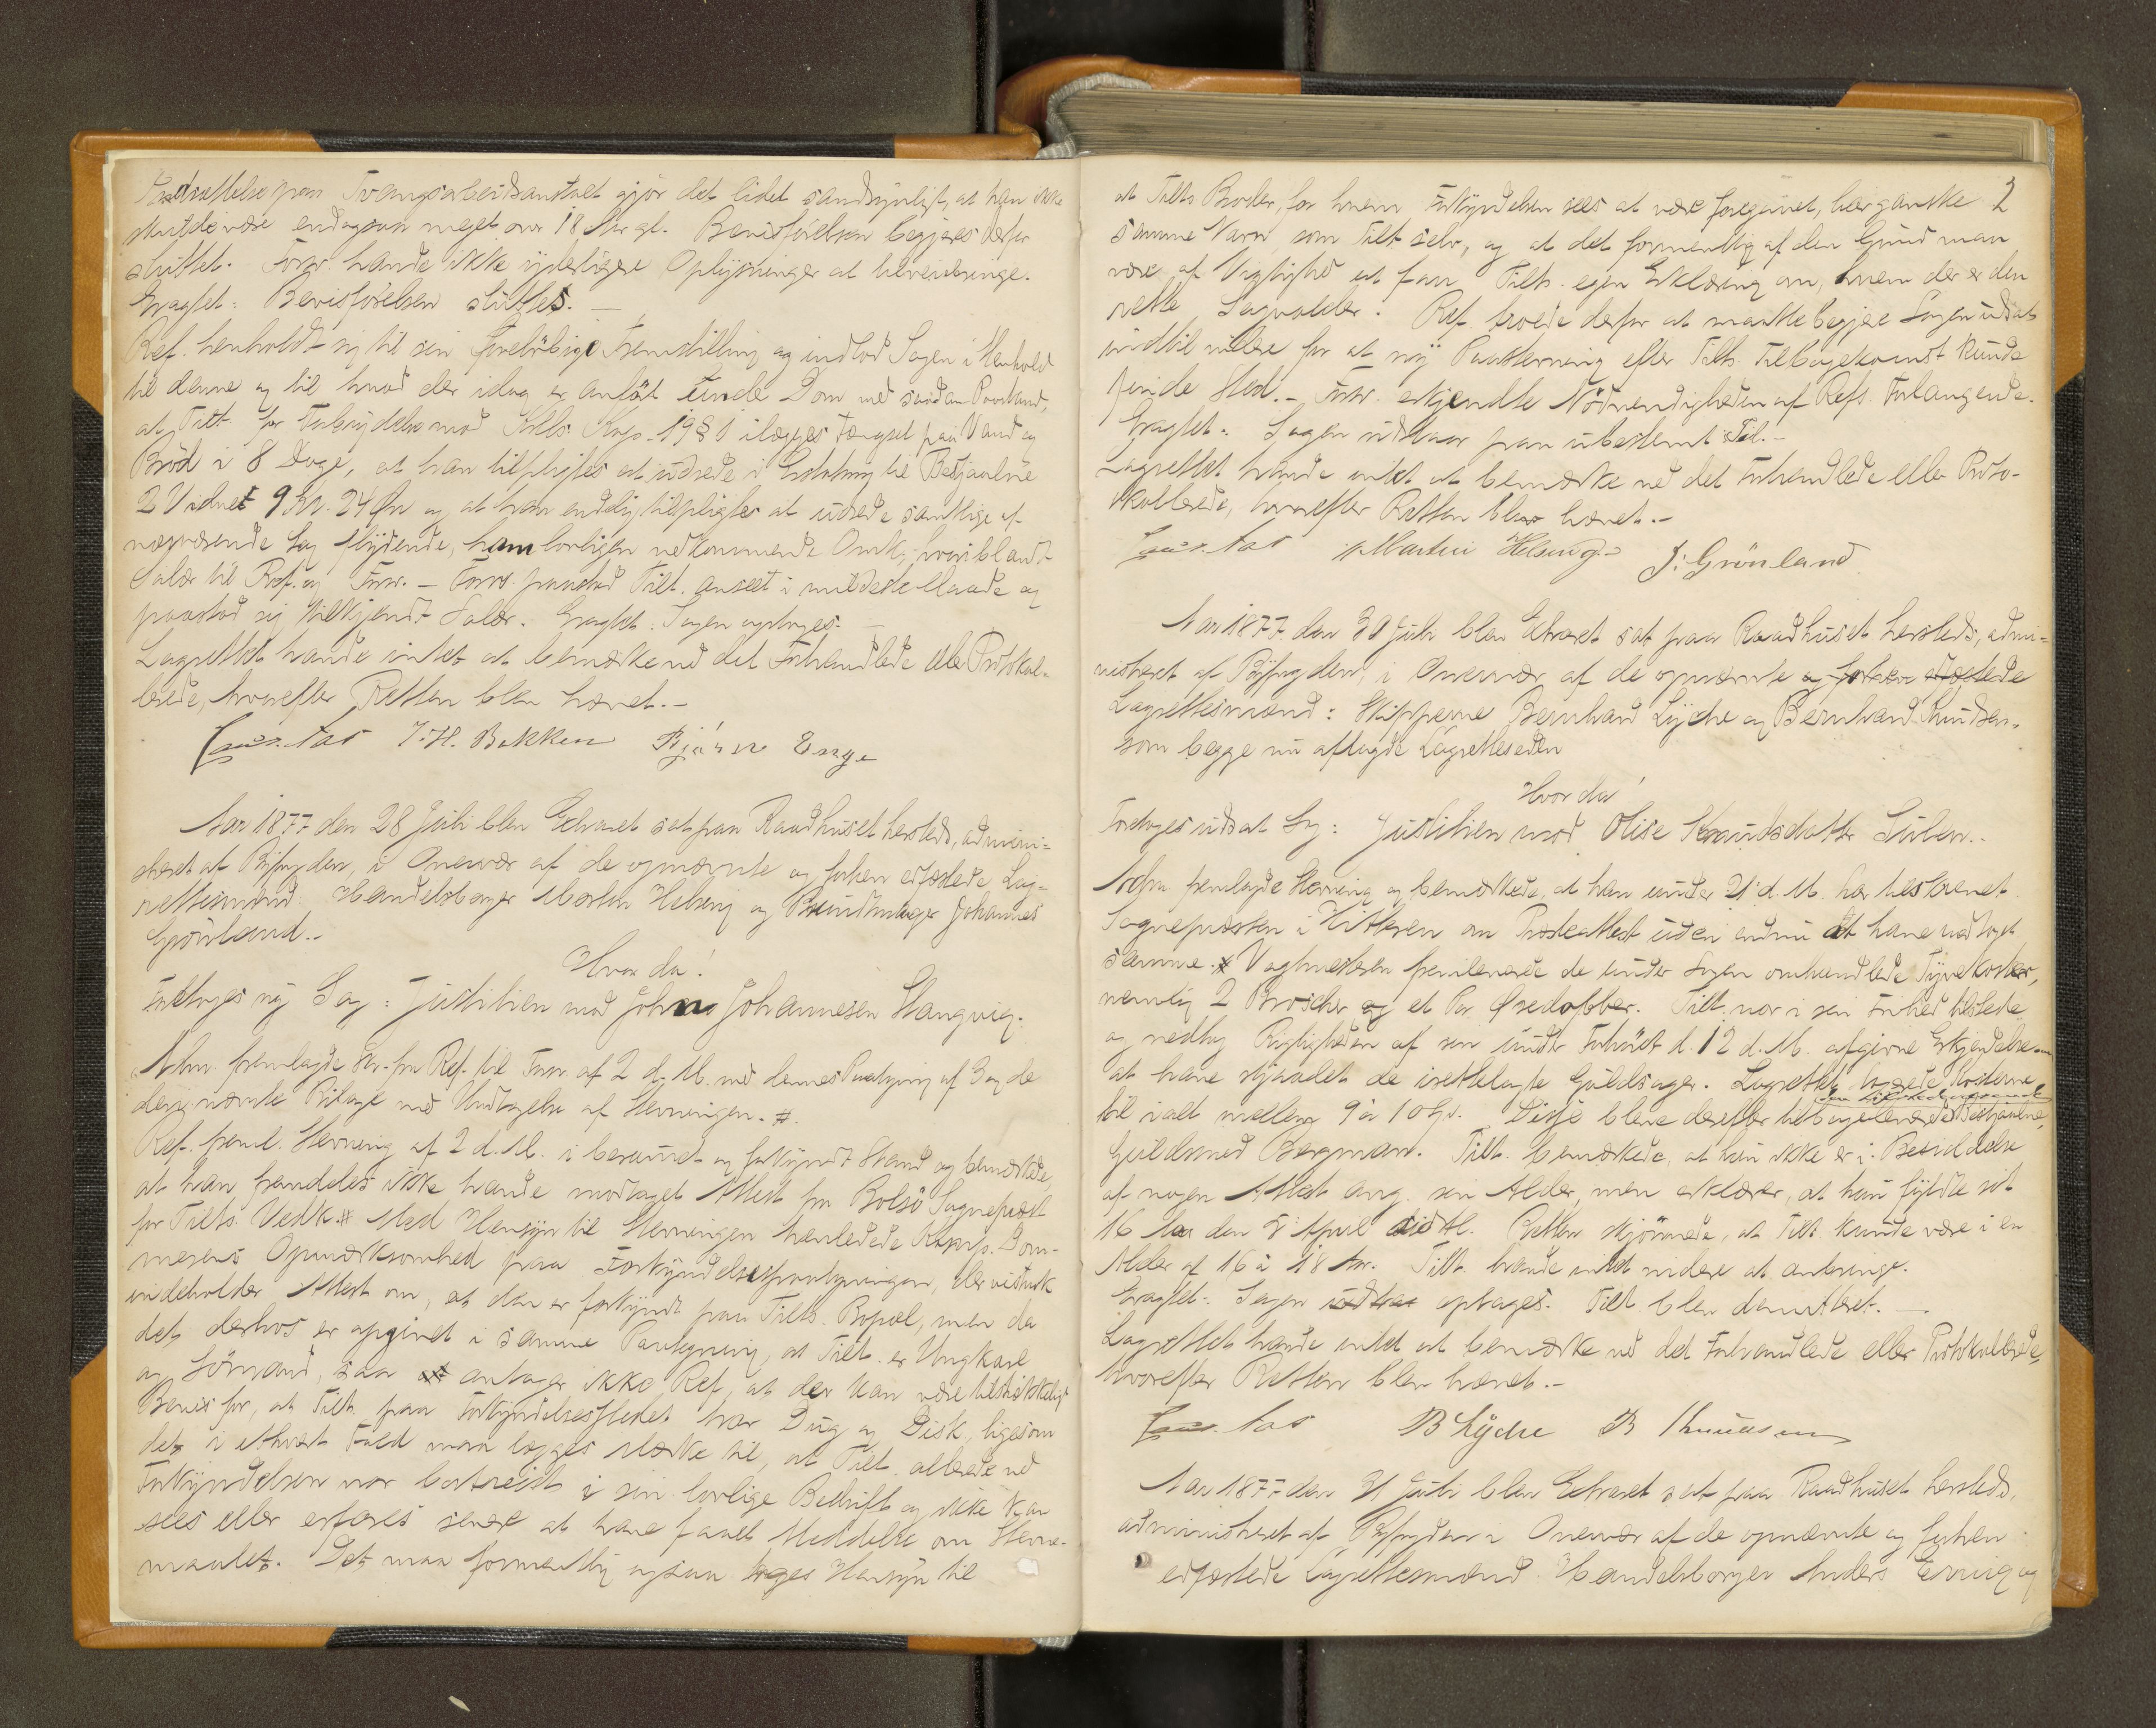 Indsættelse paa Tvangsarbeidsanstalt gjør det lidet sandsynligt, at han ikke
skulde være endogsaa meget over 18 Aar gl. Bevisførelsen begjæres derfor
sluttet. Forsv. havde ikke yderligere Oplysninger at tilveiebringe.
Eragtet: Bevisførelsen sluttes. —
Ref. henholdt sig til sin foreløbige Fremstilling og indlod Sagen i Henhold
til denne og til hvad der idag er anført under Dom med saadan Paastand,
at Tilt. for Forbrydelse mod Krls. Kap. 19 § 1 ilægges Fængsel paa Vand og
Brød i 8 Dage, at han tilpligtes at udrede i Erstatning til Bestjaalne
2 Vidnet 9 Kr. 24 Øre og at han endelig tilpligtes at udrede samtlige af
nærværende Sag flydende, ham lovligen vedkommende Omk., hvoriblandt
Salær til Ref. og Forsv. — Forsv. paastod Tilt. anseet i mildeste Maade og
paastod sig tilkjendt Salær. Eragtet: Sagen optages. —
Lagrettet havde intet at bemærke ved det Forhandlede eller Protokol-
lerede, hvorefter Retten blev hævet. —
J. H. Bakken Bjørn Enge
Aar 1877 den 28 Juli blev Extraret sat paa Raadhuset hersteds, admini-
streret af Byfogden, i Overvær af de opnævnte og forhen edfæstede Lag-
rettesmænd Handelsborger Martin Helsing og Buntmager Johannes
Grønland. —
Hvor da!
Foretoges ny Sag: Justitien mod John Johannesen Stangvig.
Adm. fremlagde Skr. fra Ref. til Forsv. af 2 d. M. med dennes Paategning af 3 og de
deri nævnte Bilage med Undtagelse af Stevningen. #.
Ref. freml. Stevning af 2 d. M. i beramet og forkyndt Stand og bemærkede,
at han fremdeles ikke havde modtaget Attest fra Bolsø Sognepræst
for Tilts. Vedk. # Med Hensyn til Stevningen henledede Dom-
merens Opmærksomhed paa Forkyndelsespaategningen, der vistnok
indeholder Attest om, at den er forkyndt paa Tilts. Bopæl, men da
det derhos er opgivet i samme Paategning, at Tilt. er Ungkarl
og Sømand, saa antager ikke Ref., at der kan være tilstrækkeligt
Bevis for, at Tilt. paa Forkyndelsesstedet har Dug og Disk, ligesom
det i ethvert Fald maa lægges Mærke til, at Tilt. allerede ved
Forkyndelsen var bortreist i sin lovlige Bedrift og ikke kan
sees eller erfares senere at have faaet Meddelelse om Stevne-
maalet. Det maa formentlig ogsaa tages Hensyn til
2
at Tilts. Broder, for hvem Forkyndelsen sees at være foregaaet, bær ganske
samme Navn som Tilt. selv, og at det formentlig af den Grund maa
være af Vigtighed at faa Tilts. egen Erklæring om, hvem der er den
rette Sagvolder. Ref. troede derfor at maatte begjære Sagen udsat
indtil videre for at ny Paastevning efter Tilts. Tilbagekomst kunde
finde Sted. — Forsv. erkjendte Nødvendigheden af Refs. Forlangende.
Eragtet: Sagen udstaar paa ubestemt Tid. —
Lagrettet havde intet at bemærke ved det Forhandlede eller Proto-
kollerede, hvorefter Retten blev hævet. —
Martin Helsing. J. Grønland
Aar 1877 den 30 Juli blev Extraret sat paa Raadhuset hersteds, admi-
nistreret af Byfogden, i Overvær af de opnævnte og forhen edfæstede
Lagrettesmænd: Skipperne Bernhard Lyche og Bernhard Knudsen,
som begge nu aflagde Lagretteseden
Hvor da!
Foretoges udsat Sag: Justitien mod Olise Knudsdatter Sulen. .
Adm. fremlagde Stevning og bemærkede, at han under 21 d. M. har tilskrevet
Sognepræsten i Hitteren om Præsteattest uden endnu at have modtaget
samme. # Vagtmesteren fremleverede de under Sagen omhandlede Tyvekoster,
nemlig 2 Broscher og et Par Øredobber. Tilt. var i sin Frihed tilstede
og vedtog Rigtigheden af sin under Forhøret d. 12 d. M. afgivne Erkjendelse om
at have stjaalet de irettelagte Guldsager. Lagrettet Kosterne
til ialt mellem 9 à 10 Kr. Disse bleve derefter tilbageleverede Bestjaalne,
Guldsmed Bergman. Tilt. bemærkede, at hun ikke er i Besiddelse
af nogen Attest ang. sin Alder, men erklærer, at hun fyldte sit
16 Aar den 8 April sidstl. Retten skjønnede, at Tilt. kunde være i en
Alder af 16 à 18 Aar. Tilt. havde intet videre at anbringe.
Eragtet: Sagen optages. Tilt. blev demitteret. —
Lagrettet havde intet at bemærke ved det Forhandlede eller Protokollerede,
hvorefter Retten blev hævet. —
B Lyche B Knudsen
Aar 1877 den 31 Juli blev Extraret sat paa Raadhuset hersteds,
administreret af Byfogden i Overvær af de opnævnte og forhen
edfæstede Lagrettesmænd Handelsborger Anders og